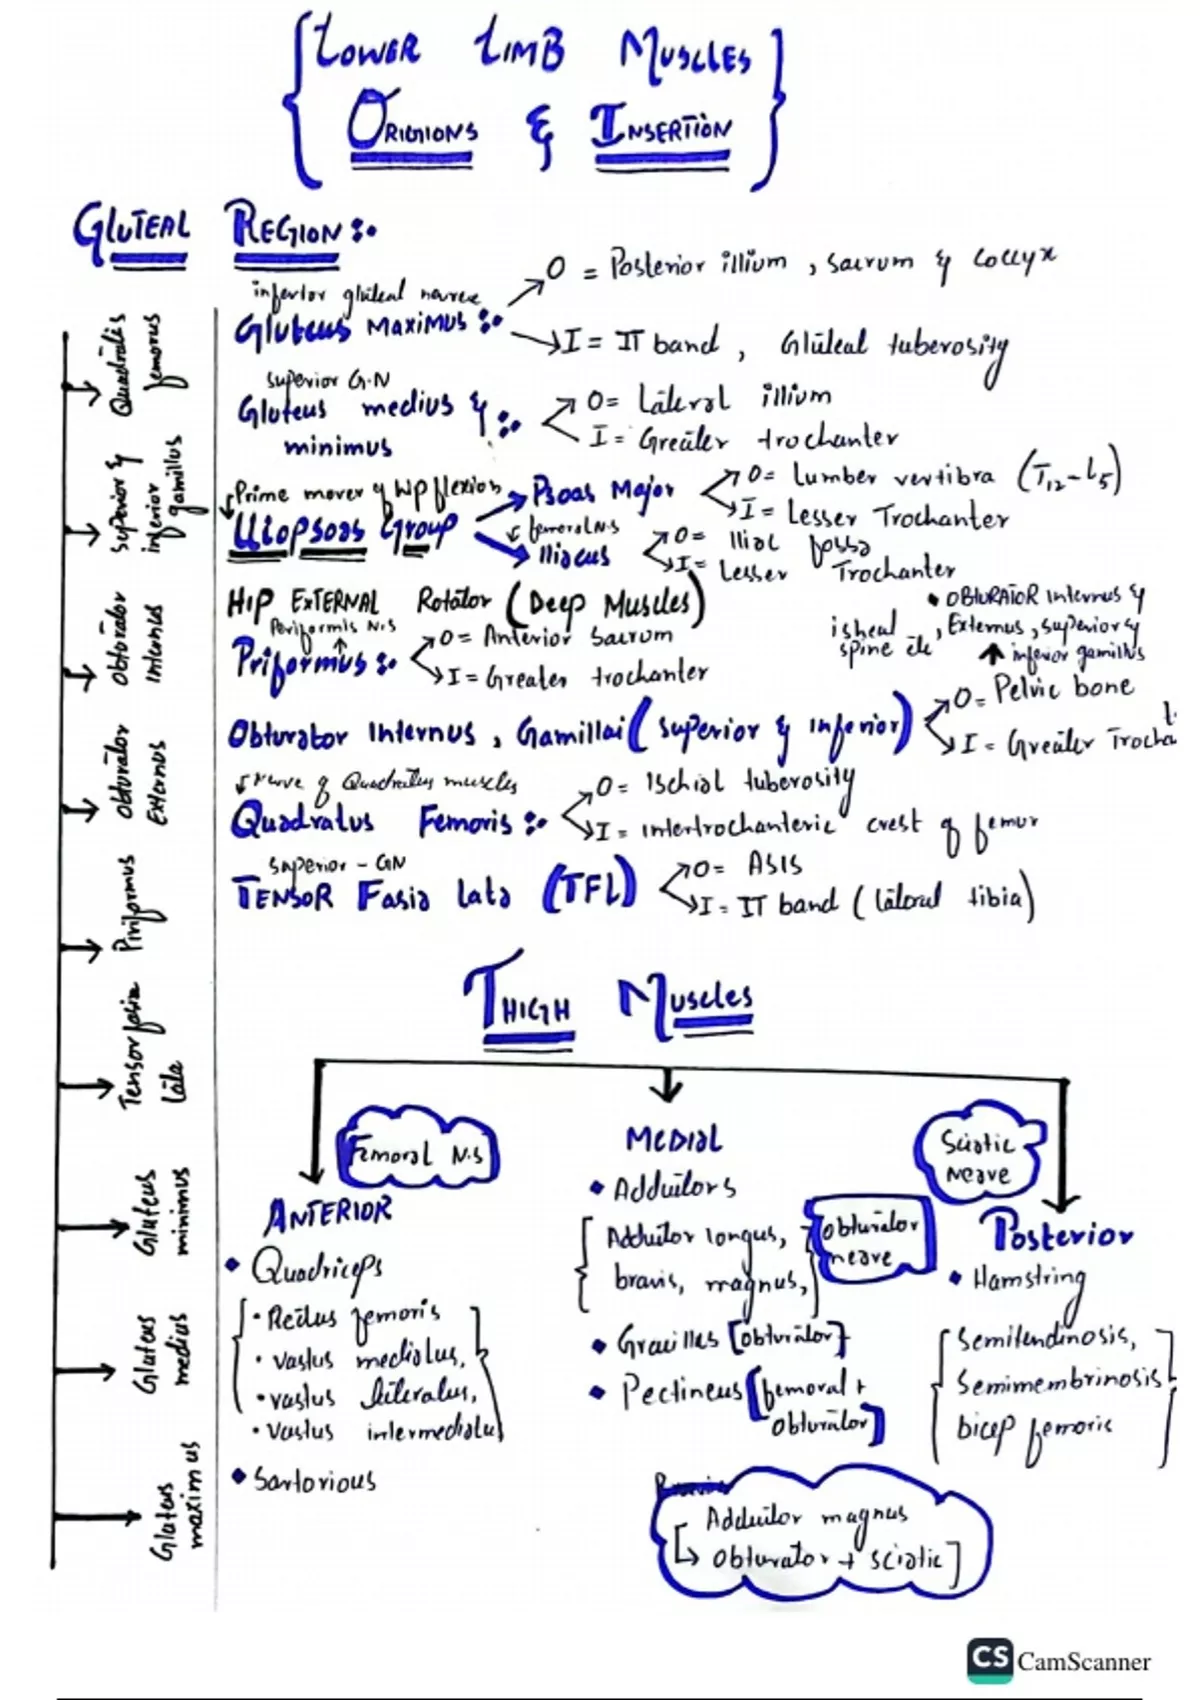 LOWER LIMB MUSCLES
ORIGIONS & INSERTION
GLUTEAL REGION :-
inferior gluteal nerve
Gluteus MAXIMUS :-
O = Posterior illium , sacrum & coccyx
I = IT band , Gluteal tuberosity
superior G.N
Gluteus medius &
minimus :-
O = Lateral illium
I = Greater trochanter
Prime mover of hip flexion
Iliopsoas Group
Psoas Major
O = Lumber vertibra (T12-L5)
I = Lesser Trochanter
femoral N.S
Iliacus
O = Iliac fossa
I = Lesser Trochanter
HIP EXTERNAL Rotator (Deep Muscles)
• OBTURATOR internus &
Externus, superior &
inferior gamillus
isheal spine etc
Periformis N.S
Priformus :-
O = Anterior sacrum
I = Greater trochanter
Obturator Internus , Gamillai (superior & inferior)
O = Pelvic bone
I = Greater Trocha
Nerve of Quadratus muscles
Quadratus Femoris :-
O = Ischial tuberosity
I = intertrochanteric crest of femur
superior - GN
TENSOR Fasia lata (TFL)
O = ASIS
I = IT band (lateral tibia)
Quadratis femorus
Superior & inferior gamillus
Obturator Internus
Obturator Externus
Piriformus
Tensor fasia lata
Gluteus minimus
Gluteus medius
Gluteus maximus
THIGH MUSCLES
Femoral N.S
ANTERIOR
• Quadriceps
• Rectus femoris
• vastus medialus,
• vastus literalus,
• Vastus intermedialus
• Sartorious
MEDIAL
• Adductors
Adductor longus,
bravis, magnus,
Obturator
nerve
• Gracilles [obturator]
• Pectineus [femoral +
obturator]
Adductor magnus
[→ obturator + sciatic]
Sciatic
nerve
Posterior
• Hamstring
Semitendinosis,
Semimembrinosis
bicep femoris
CS CamScanner